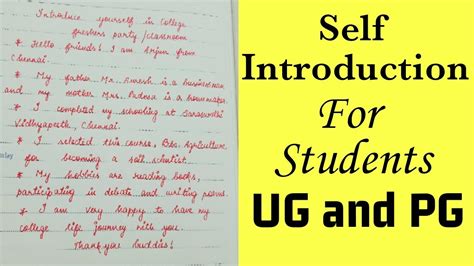 Introduce yourself in College
freshers party/classroom
* Hello friends! I am Arjun from
Chennai.
* My father Mr. Suresh is a businessman
and my mother Mrs. Padma is a homemaker.
* I completed my schooling at Saraswathi
Vidhyapeeth, Chennai.
* I selected this course, BSc. Agriculture
for becoming a soil scientist.
* My hobbies are reading books,
participating in debate and writing poems.
* I am very happy to have my
college life journey with you.
Thank you buddies!
Self
Introduction
For
Students
UG and PG